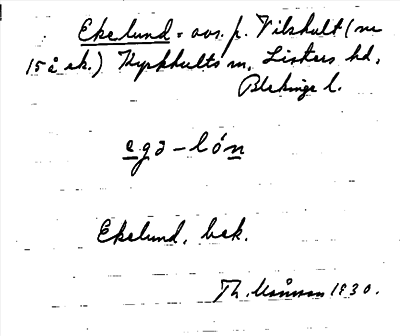 Ekelund - avs. p. Vilshult (nr
15 å ek.) Kyrkhults sn, Listers hd,
Blekinge l.
egə-lón
Ekelund, bek.
Th. 1930.